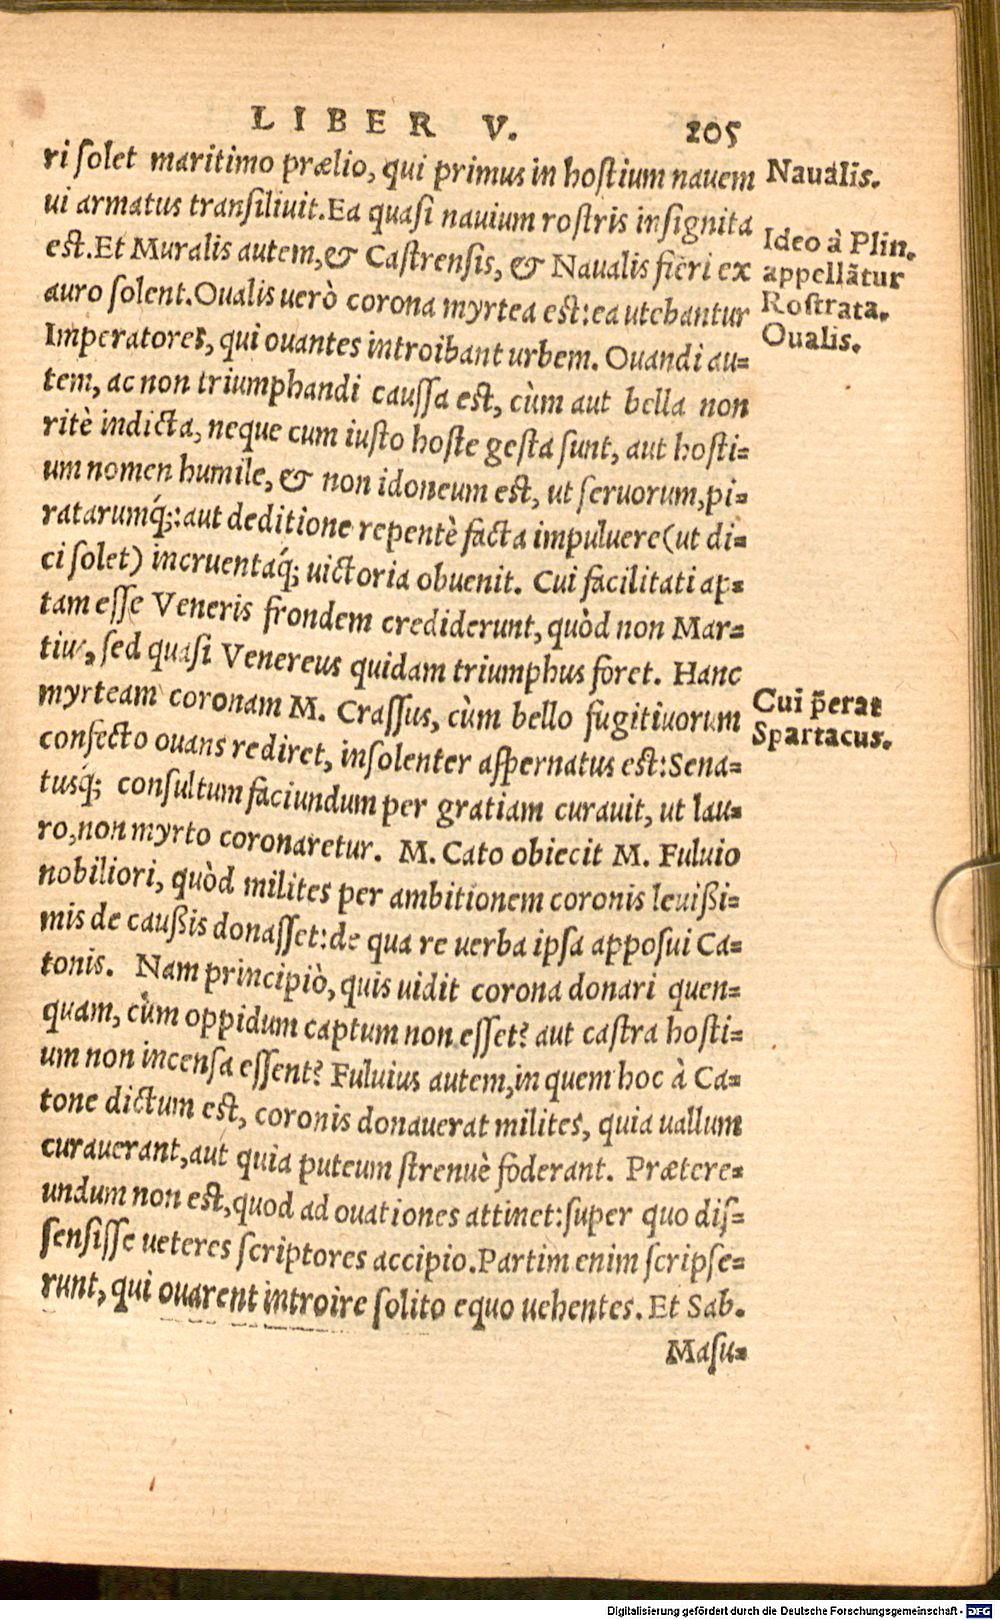 LIBER V. 205
ri solet maritimo prælio, qui primus in hostium nauem
ui armatus transiliuit. Ea quasi nauium rostris insignita
est. Et Muralis autem, & Castrensis, & Naualis fieri ex
auro solent. Oualis uerò corona myrtea est: ea utebantur
Imperatores, qui ouantes introibant urbem. Ouandi au=
tem, ac non triumphandi caussa est, cùm aut bella non
ritè indicta, neque cum iusto hoste gesta sunt, aut hosti=
um nomen humile, & non idoneum est, ut seruorum, pi=
ratarumq́;: aut deditione repentè facta impuluere (ut di=
ci solet) incruentaq́; uictoria obuenit. Cui facilitati ap=
tam esse Veneris frondem crediderunt, quòd non Mar=
tius, sed quasi Venereus quidam triumphus foret. Hanc
myrteam coronam M. Crassus, cùm bello fugitiuorum
confecto ouans rediret, insolenter aspernatus est: Sena=
tusq́; consultum faciundum per gratiam curauit, ut lau=
ro, non myrto coronaretur. M. Cato obiecit M. Fuluio
nobiliori, quòd milites per ambitionem coronis leuißi=
mis de caußis donasset: de qua re uerba ipsa apposui Ca=
tonis. Nam principiò, quis uidit corona donari quen=
quam, cùm oppidum captum non esset? aut castra hosti=
um non incensa essent? Fuluius autem, in quem hoc à Ca=
tone dictum est, coronis donauerat milites, quia uallum
curauerant, aut quia puteum strenuè foderant. Prætere=
undum non est, quod ad ouationes attinet: super quo dis=
sensisse ueteres scriptores accipio. Partim enim scripse=
runt, qui ouarent introire solito equo uehentes. Et Sab.
Masu=
Naualis.
Ideo à Plin.
appellãtur
Rostrata.
Oualis.
Cui p̃erat
Spartacus.
Digitalisierung gefördert durch die Deutsche Forschungsgemeinschaft - DFG